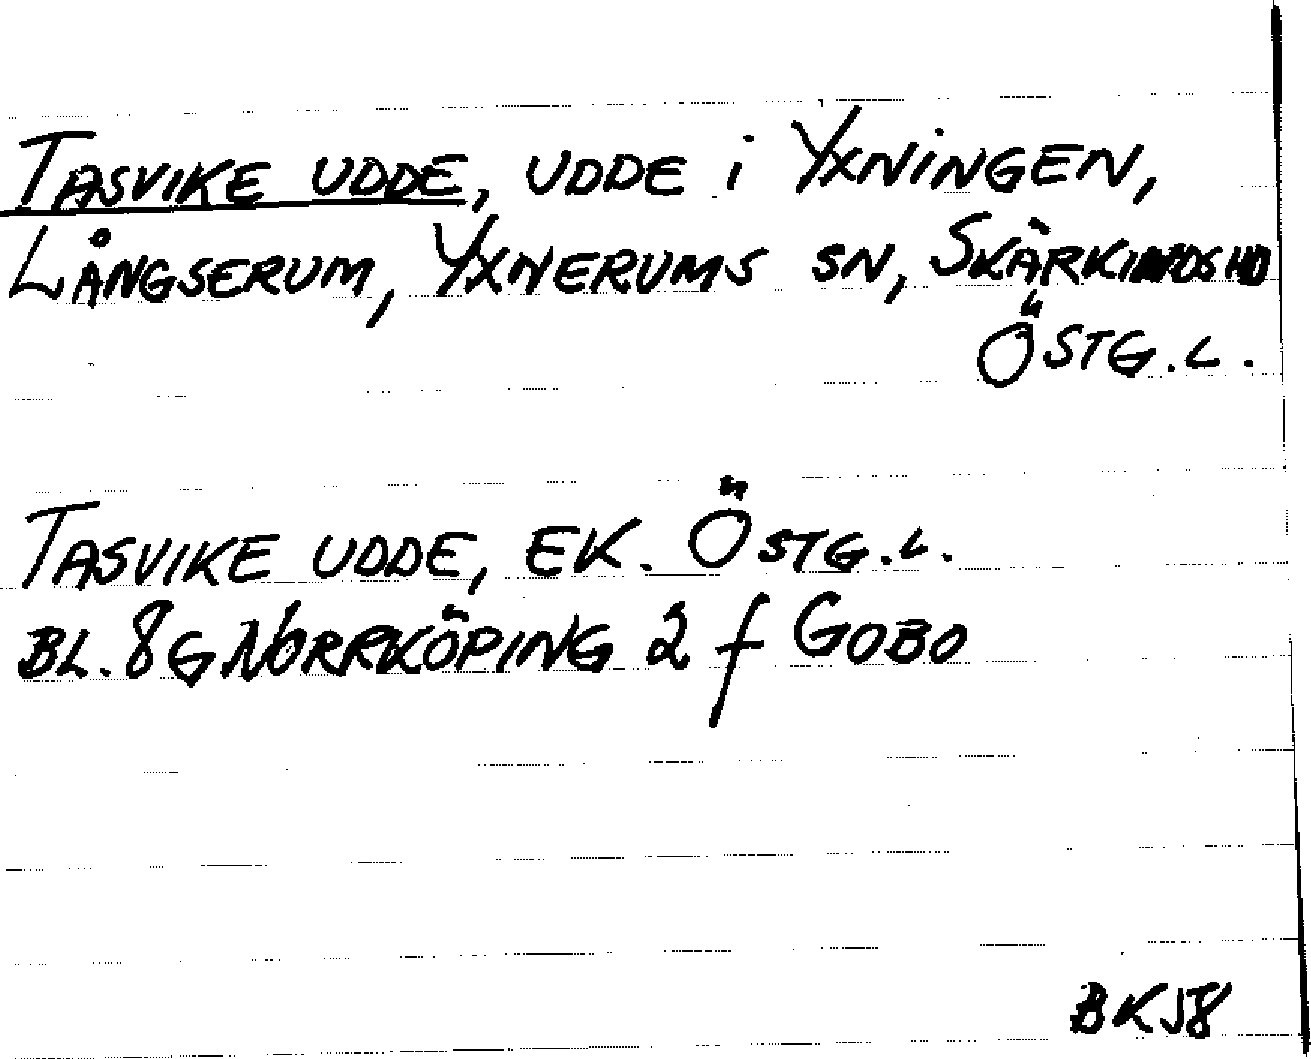 TASVIKE UDDE, UDDE i YXNINGEN,
LÅNGSERUM, YXNERUMS SN, SKÄRKINDS HD
ÖSTG.L.
TASVIKE UDDE, EK. ÖSTG.L.
BL. 8G NORRKÖPING 2 f GOBO
BKJ8